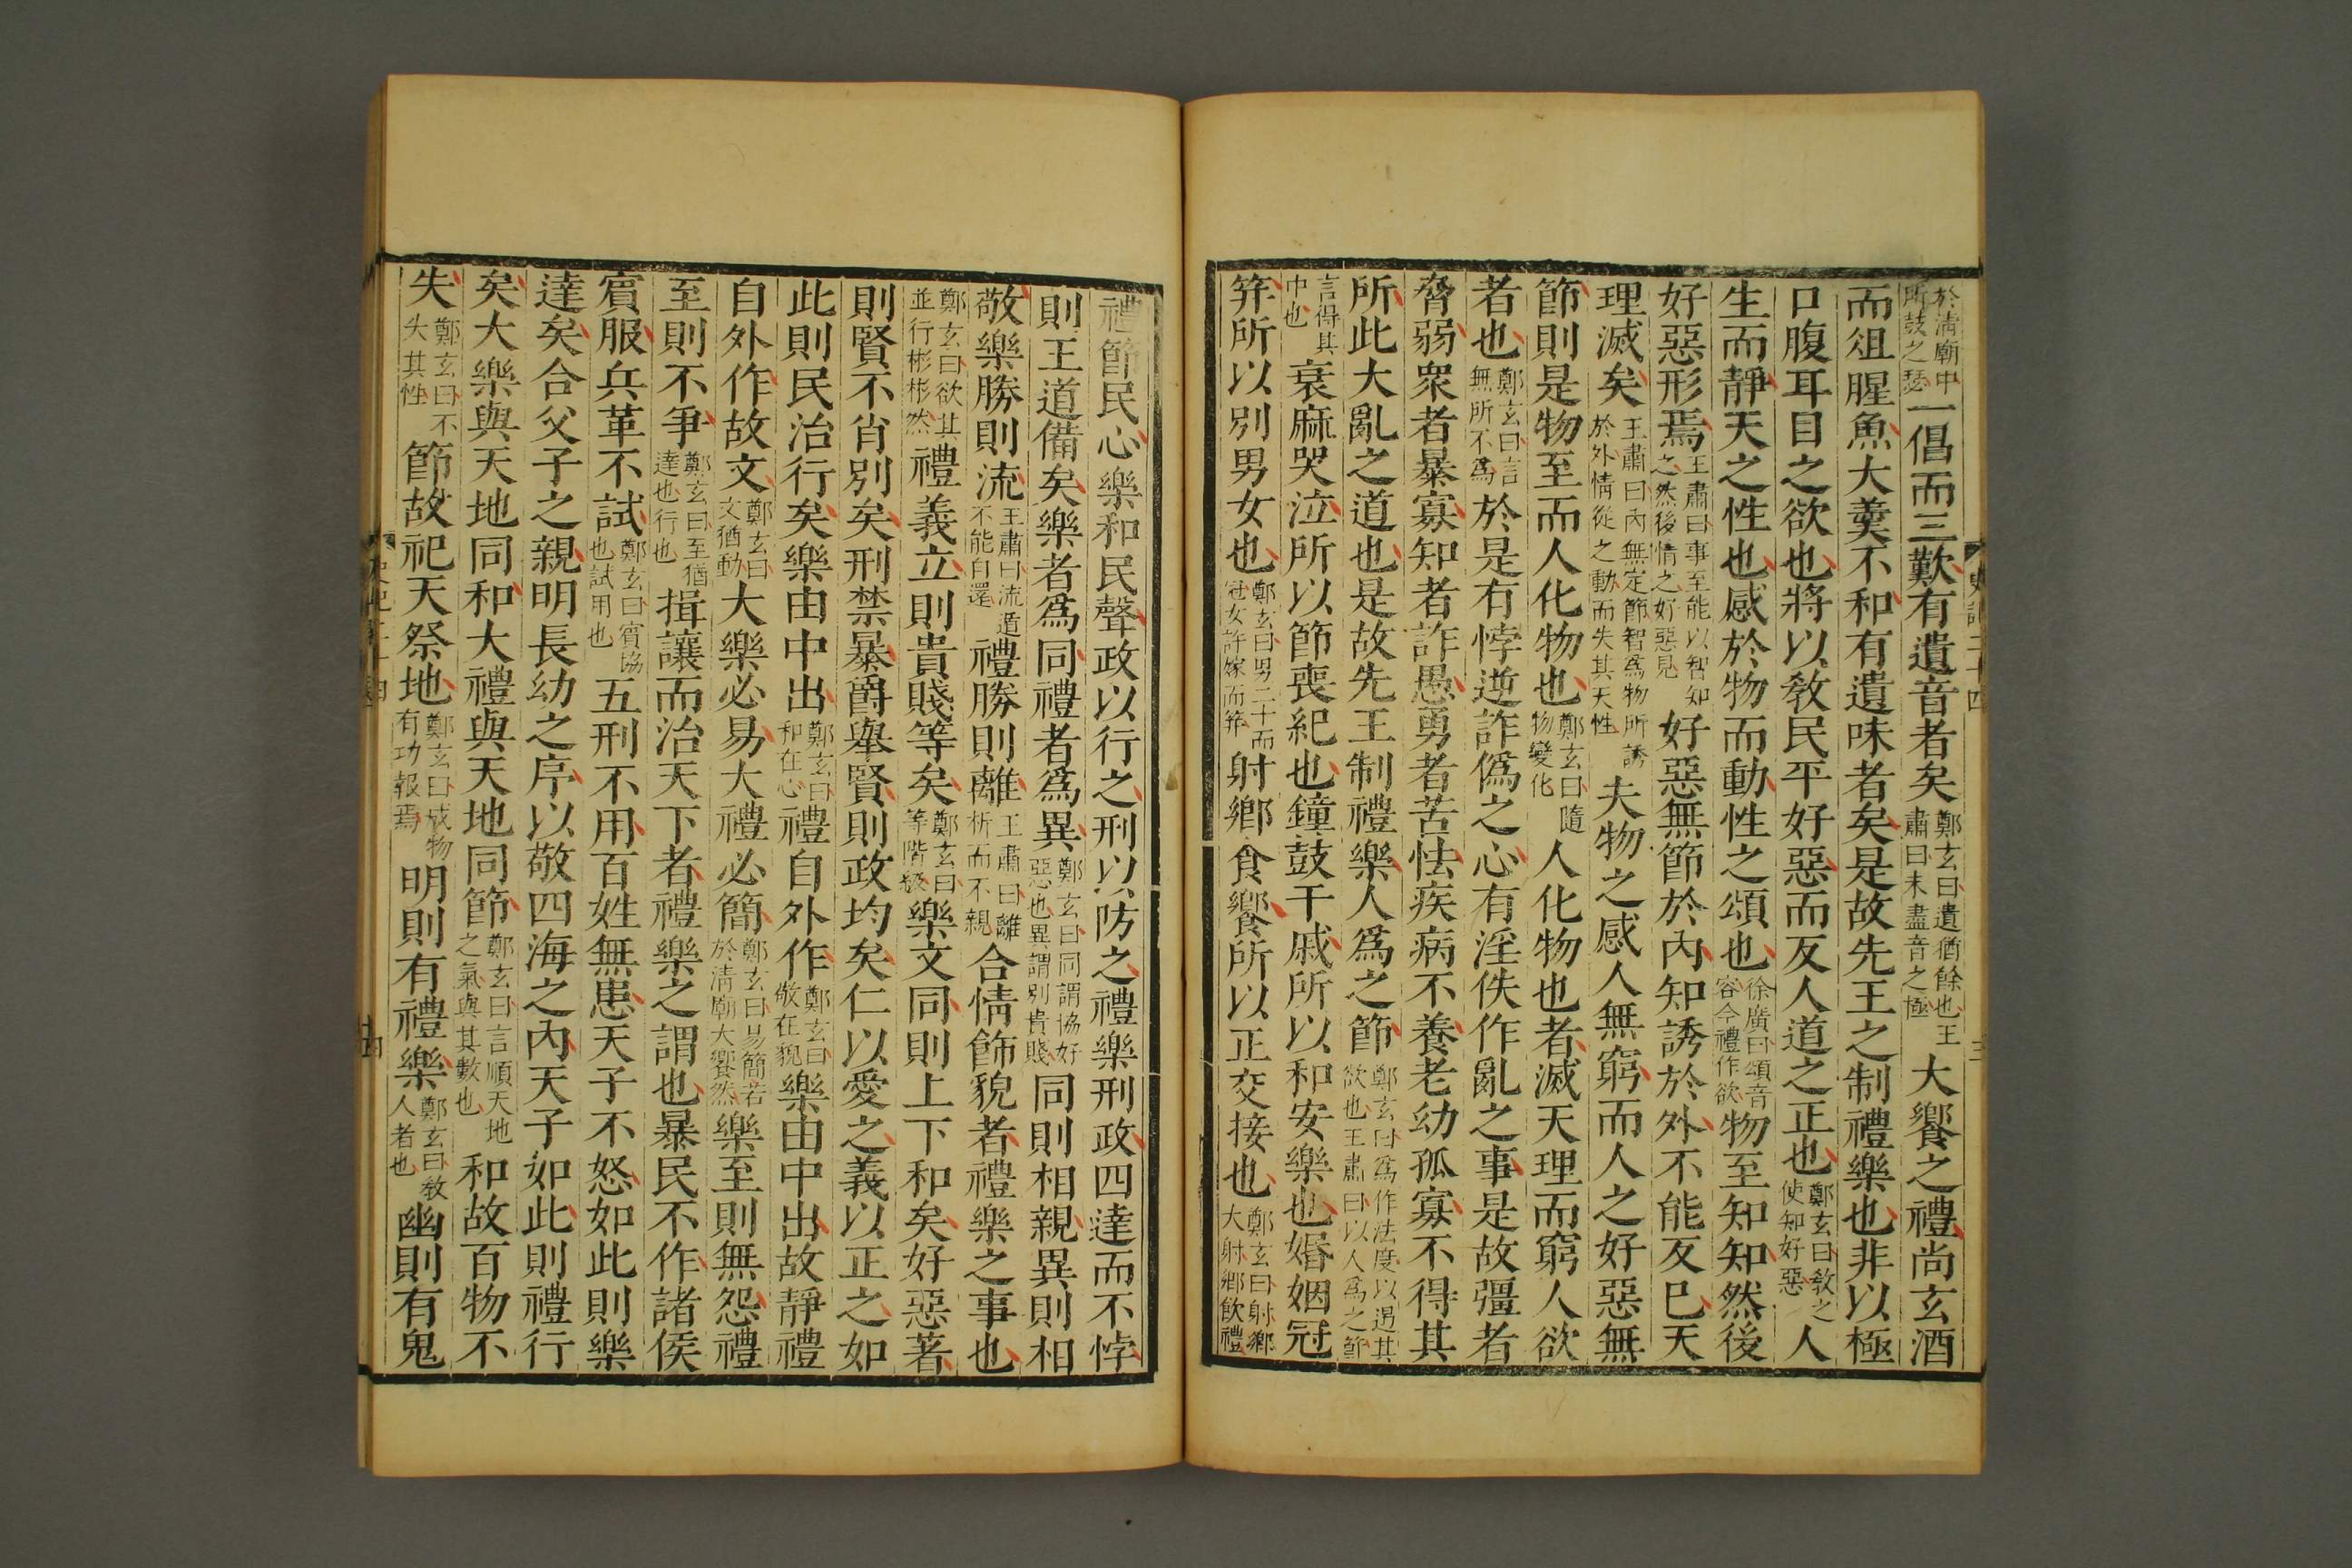 於清廟中所鼓之瑟一倡而三歎有遺音者矣鄭玄曰遺猶餘也王肅曰未盡音之極大饗之禮尚玄酒
而俎腥魚大羹不和有遺味者矣是故先王之制禮樂也非以極
口腹耳目之欲也將以敎民平好惡而反人道之正也鄭玄曰敎之使知好惡人
生而靜天之性也感於物而動性之頌也徐廣曰頌音容今禮作欲物至知知然後
好惡形焉王肅曰事至能以智知之然後情之好惡見好惡無節於內知誘於外不能反已天
理滅矣王肅曰內無定節智爲物所誘於外情從之動而失其天性夫物之感人無窮而人之好惡無
節則是物至而人化物也鄭玄曰隨物變化人化物也者滅天理而窮人欲
者也鄭玄曰言無所不爲於是有悖逆詐僞之心有淫佚作亂之事是故彊者
脅弱衆者暴寡知者詐愚勇者苦怯疾病不養老幼孤寡不得其
所此大亂之道也是故先王制禮樂人爲之節鄭玄曰爲作法度以遏其欲也王肅曰以人爲之節
言得其中也衰麻哭泣所以節喪紀也鐘鼓干戚所以和安樂也婚姻冠
笄所以別男女也鄭玄曰男二十而冠女許嫁而笄射鄉食饗所以正交接也鄭玄曰射鄉大射鄉飮禮
禮節民心樂和民聲政以行之刑以防之禮樂刑政四達而不悖
則王道備矣樂者爲同禮者爲異鄭玄曰同謂協好惡也異謂別貴賤同則相親異則相
敬樂勝則流王肅曰流遁不能自還禮勝則離王肅曰離析而不親合情飾貌者禮樂之事也
鄭玄曰欲其並行彬彬然禮義立則貴賤等矣鄭玄曰等階級樂文同則上下和矣好惡著
則賢不肖別矣刑禁暴爵舉賢則政均矣仁以愛之義以正之如
此則民治行矣樂由中出鄭玄曰和在心禮自外作鄭玄曰敬在貌樂由中出故靜禮
自外作故文鄭玄曰文猶動大樂必易大禮必簡鄭玄曰易簡若於淸廟大饗然樂至則無怨禮
至則不爭鄭玄曰至猶達也行也揖讓而治天下者禮樂之謂也暴民不作諸侯
賓服兵革不試鄭玄曰賓協也試用也五刑不用百姓無患天子不怒如此則樂
達矣合父子之親明長幼之序以敬四海之內天子如此則禮行
矣大樂與天地同和大禮與天地同節鄭玄曰言順天地之氣與其數也和故百物不
失鄭玄曰不失其性節故祀天祭地鄭玄曰成物有功報焉明則有禮樂鄭玄曰敎人者也幽則有鬼